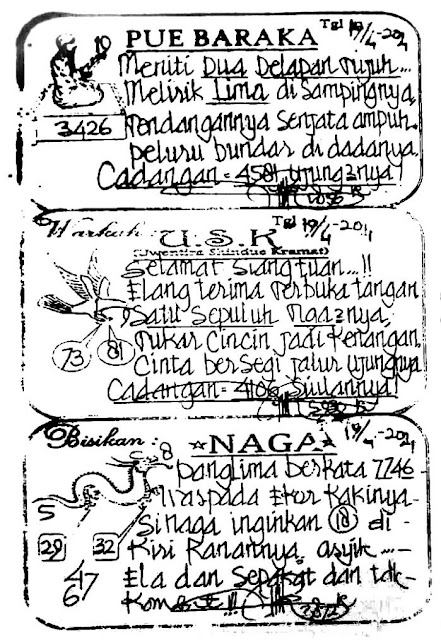 Tgl 19/4-2011
PUE BARAKA
10
Meniti Dua Delapan Tujuh...
Melirik Lima di Sampingnya,
3426
Pandangannya Senjata ampuh.
peluru bundar di dadanya.
Cadangan = 4581, Ujungnya
Tgl 19/4-2011
Warkah:
U.S.K
(Uwentira Shindue Kramat)
Selamat Siang tuan...!!
Elang terima Terbuka tangan
Satu Sepuluh
Tukar Cincin jadi Kenangan
73 81
Cinta bersegi jalur Ujungnya
Cadangan = 4106 Siulannya!
19/4-2011
Bisikan:
*NAGA*
8
panglima berkata 7746 -
Waspada Ekor Kakinya -
5
Si naga inginkan 18 di -
29 32
Kiri Kanannya, asyik ...-
47
6
Ela dan Sepakat dan tak-